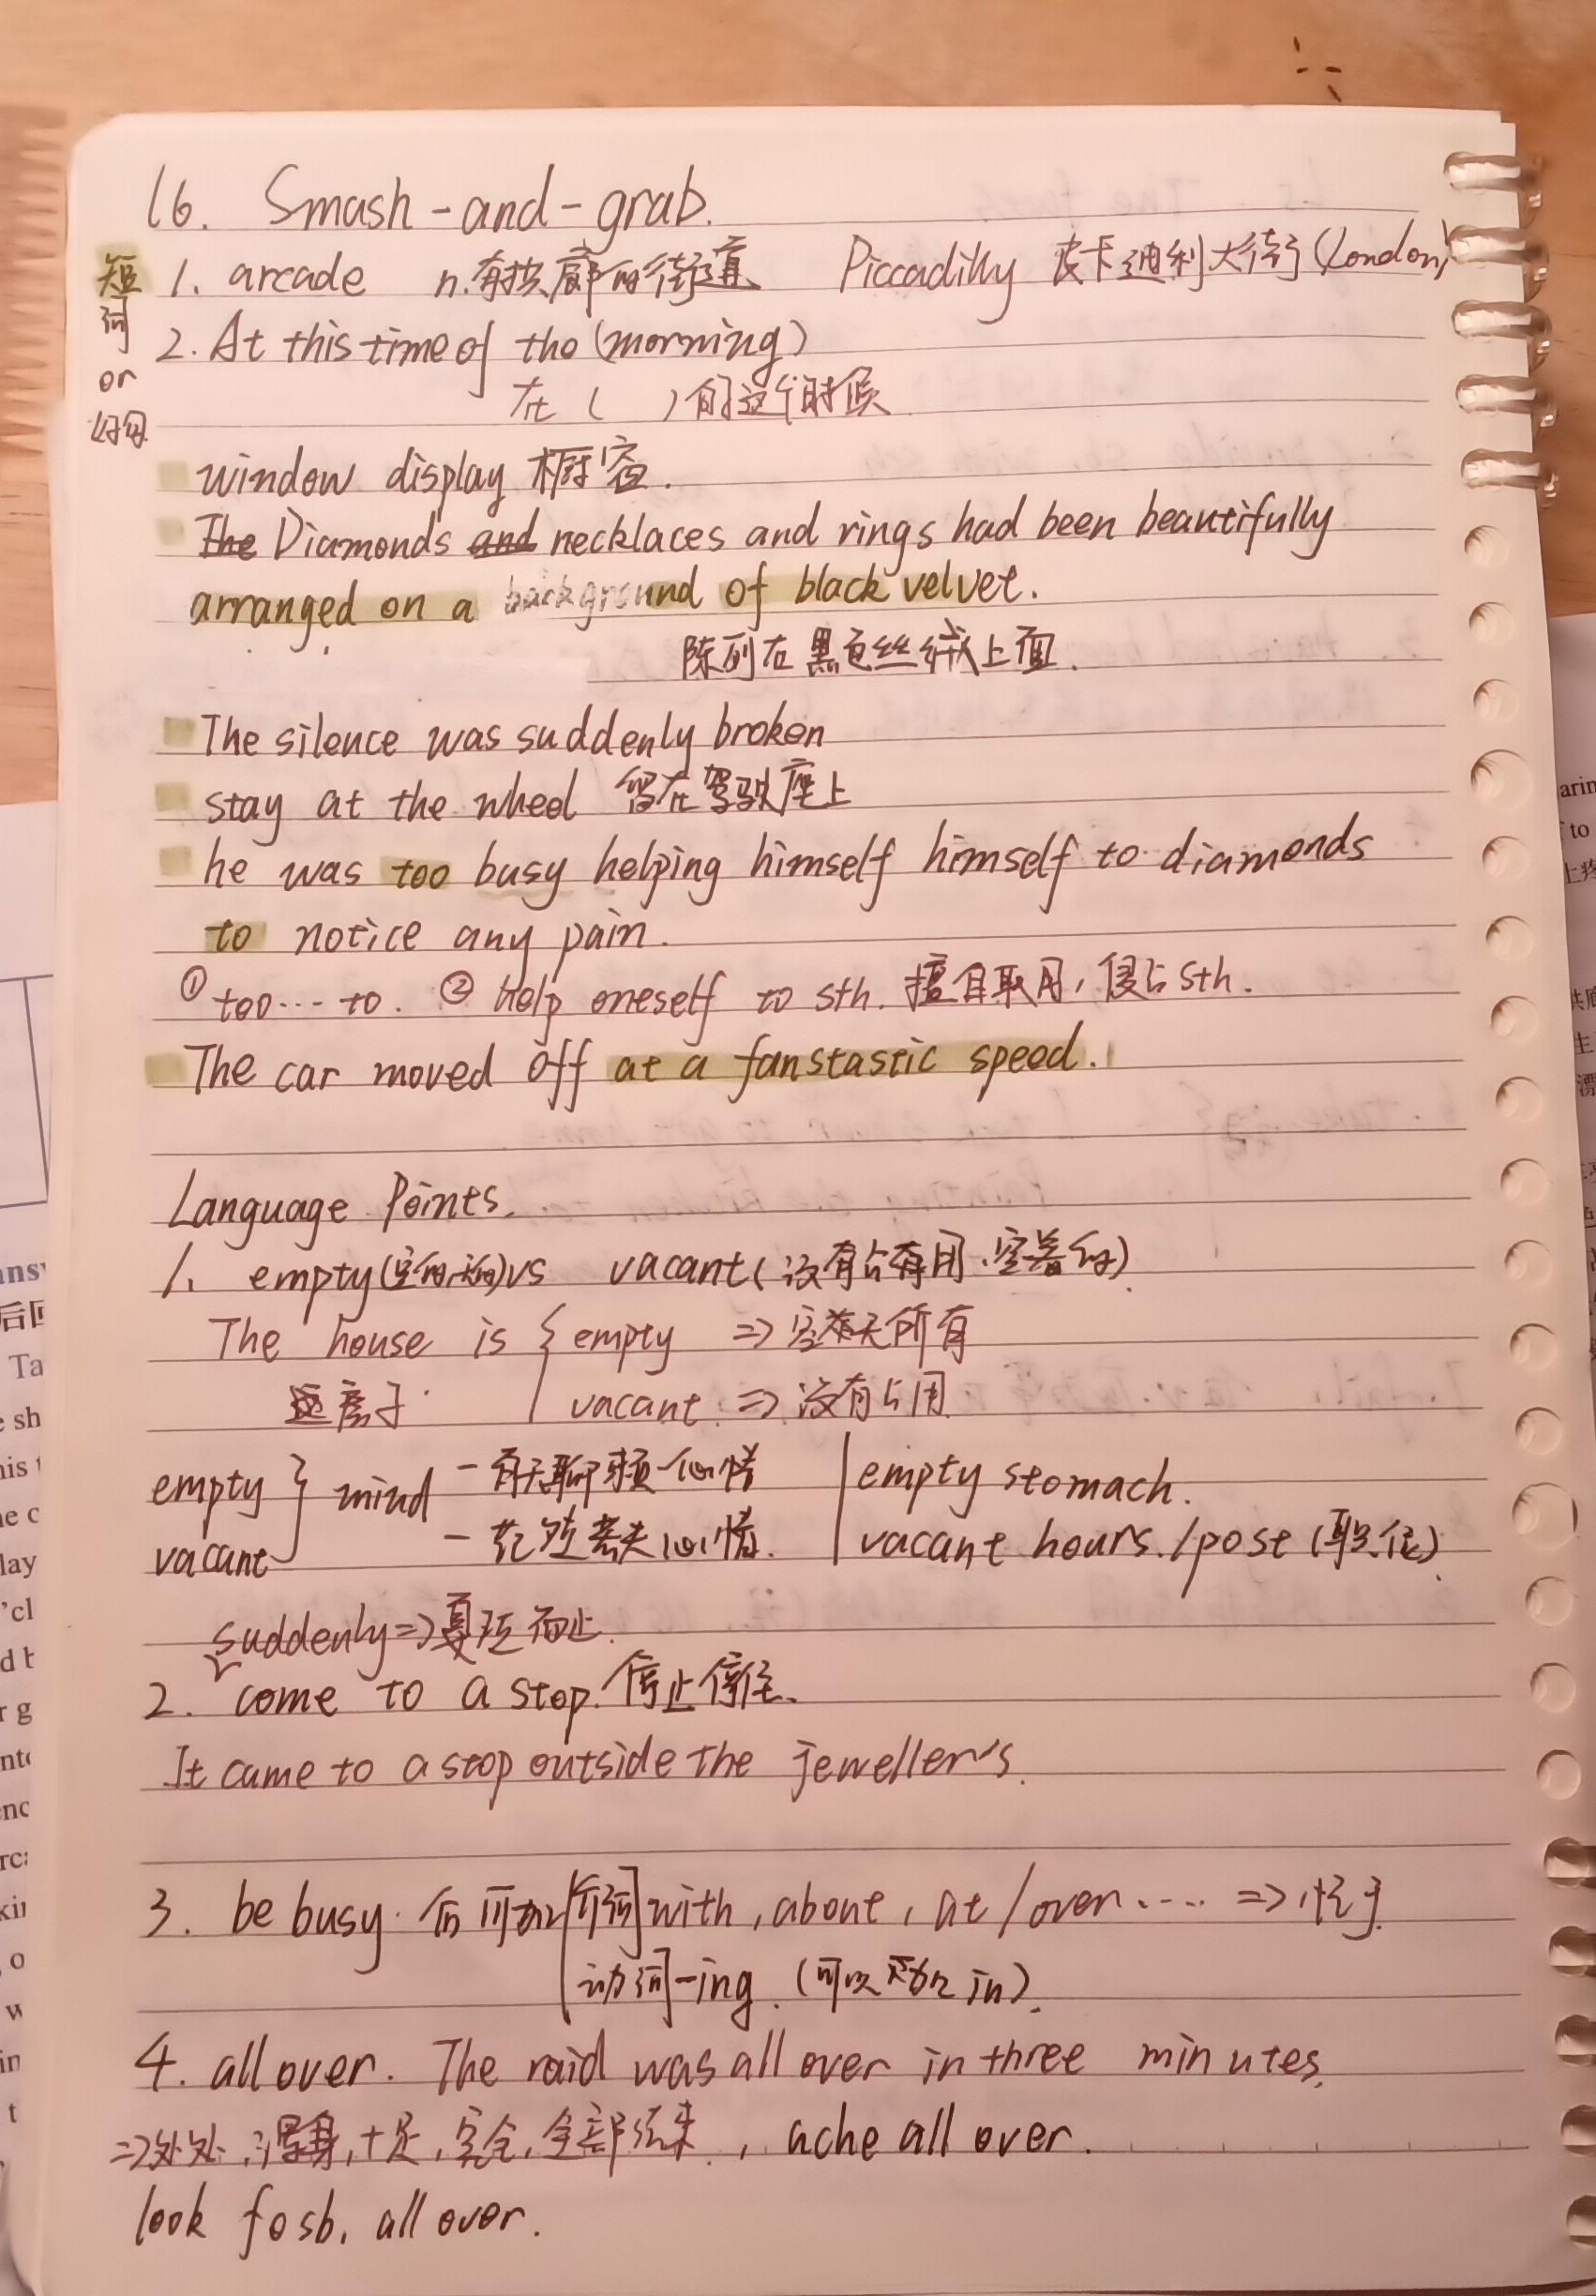 16. Smash-and-grab.
短词 or 好句
1. arcade n.有拱廊的街道 Piccadilly 皮卡迪利大街(London)
2. At this time of the (morning)
在 ( ) 的这个时候
window display 橱窗.
The Diamonds and necklaces and rings had been beautifully
arranged on a background of black velvet.
陈列在黑色丝绒上面.
The silence was suddenly broken
stay at the wheel 留在驾驶座上
he was too busy helping himself himself to diamonds
to notice any pain.
① too...to. ② help oneself to sth. 擅自取用, 侵占sth.
The car moved off at a fanstastic speed.
Language Points.
1. empty(空的, )vs vacant(没有占有用.空着的).
The house is { empty => 空无所有
这房子. vacant. => 没有占用
empty } mind - 有无聊 心情 | empty stomach.
vacant - 若失心情. | vacant hours./post (职位).
suddenly => 戛然而止.
2. come to a stop. 停止停住.
It came to a stop outside the jeweller's.
3. be busy. 后可加[介词] with, about, at / over..... => 忙于.
[动词]-ing. (可以不加in).
4. all over. The raid was all over in three minutes.
=>处处, 浑身, 十足, 完全, 全部结束., ache all over.
look fo sb. all over.